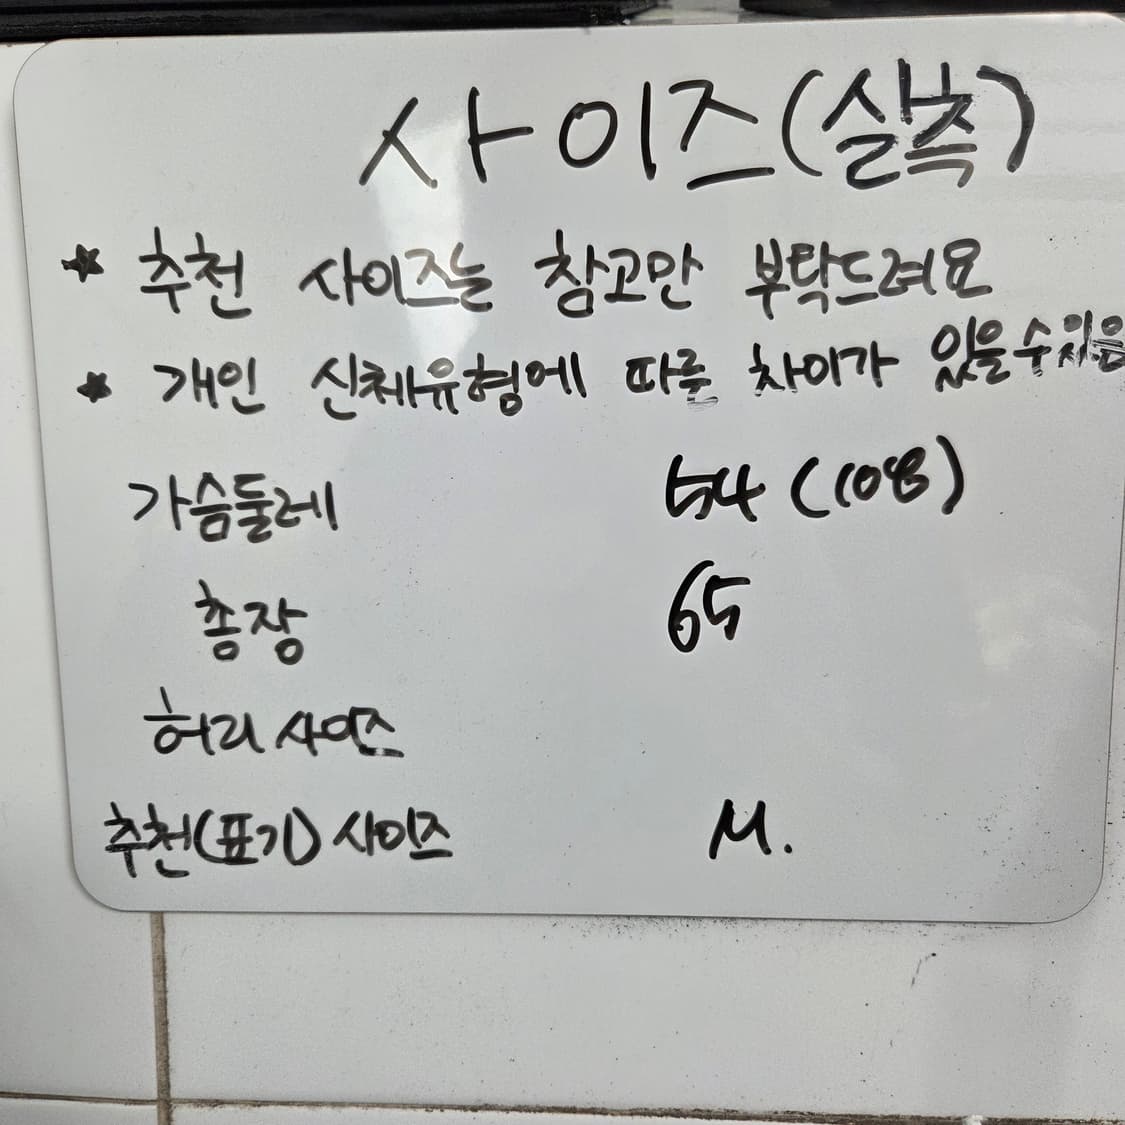 사이즈(실측)
★ 추천 사이즈는 참고만 부탁드려요
★ 개인 신체유형에 따른 차이가 있을수있음
가슴둘레 54 (108)
총장 65
허리 사이즈
추천(표기) 사이즈 M.